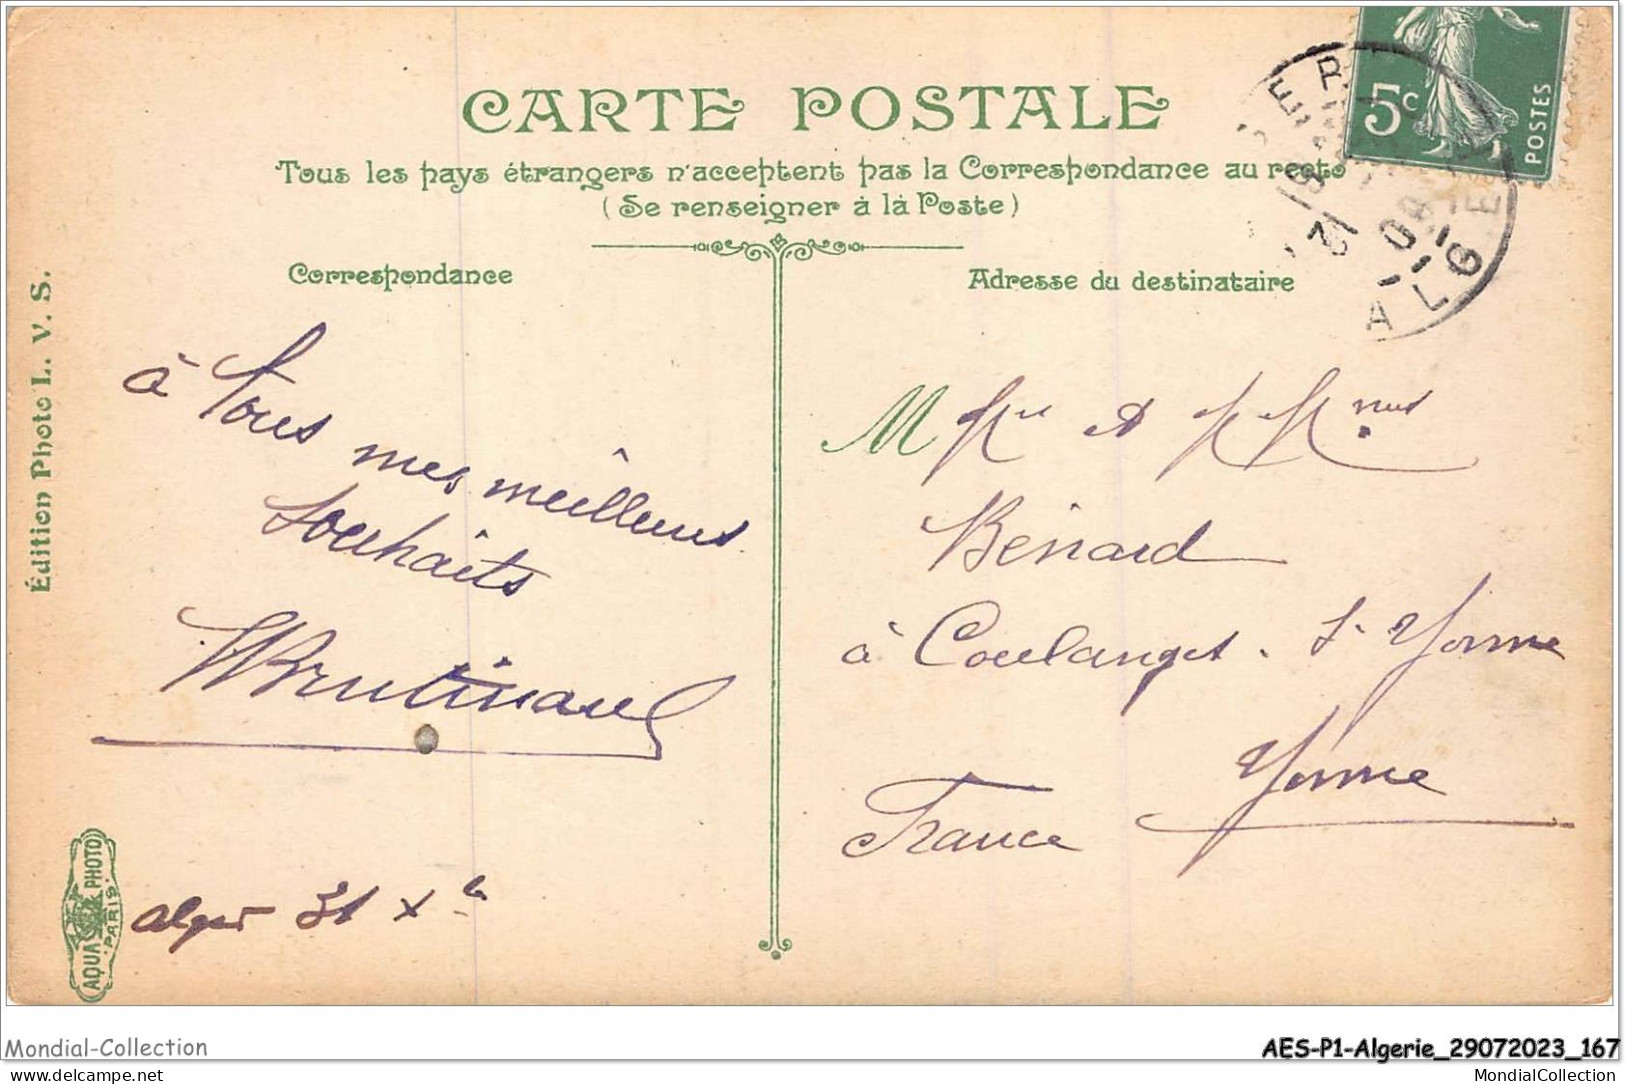 CARTE POSTALE
Tous les pays étrangers n'acceptent pas la Correspondance au recto
(Se renseigner à la Poste)
Correspondance
Adresse du destinataire
5c
POSTES
ALGER
Édition Photo L. V. S.
à Tous
mes meilleurs
Souhaits
Alger 31 Xbre
AQUA PHOTO
PARIS
M
Bénard
à Coulanges. s- Yonne
Yonne
France
Mondial-Collection
delcampe.net
AES-P1-Algerie_29072023_167
MondialCollection